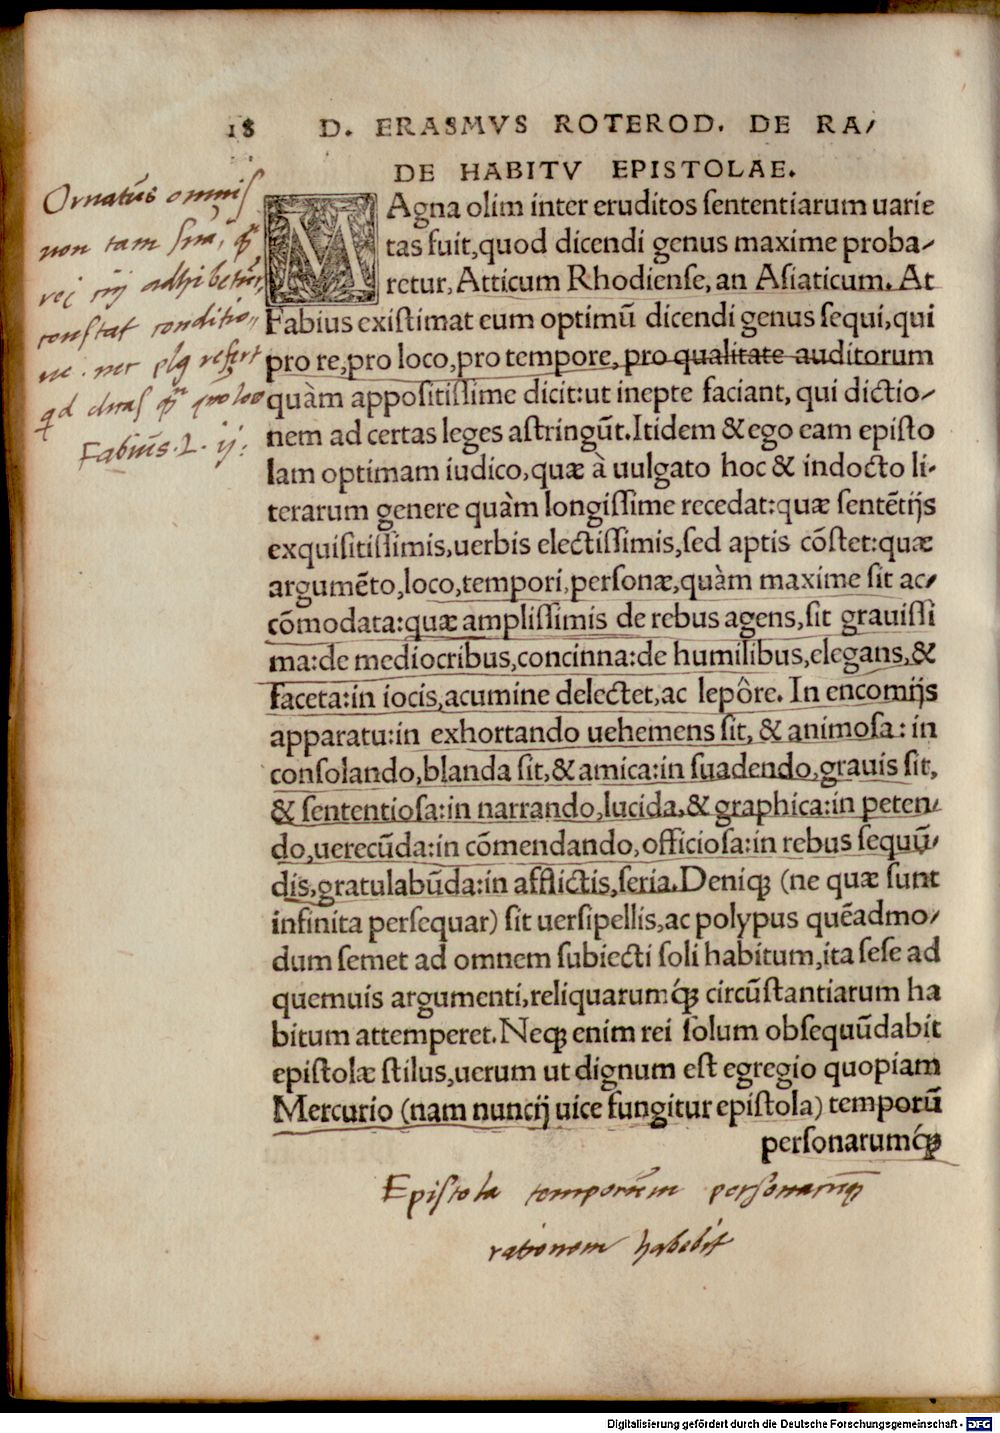 18 D. ERASMVS ROTEROD. DE RA/
DE HABITV EPISTOLAE.
MAgna olim inter eruditos ſententiarum uarie
tas fuit,quod dicendi genus maxime proba/
retur, Atticum Rhodienſe, an Aſiaticum. At
Fabius exiſtimat eum optimū dicendi genus ſequi,qui
pro re,pro loco,pro tempore, pro qualitate auditorum
quàm appoſitiſſime dicit:ut inepte faciant, qui dictio/
nem ad certas leges aſtringūt.Itidem & ego eam epiſto
lam optimam iudico,quæ à uulgato hoc & indocto li-
terarum genere quàm longiſſime recedat:quæ ſentētijs
exquiſitiſſimis,uerbis electiſſimis,ſed aptis cōſtet:quæ
argumēto,loco,tempori,perſonæ,quàm maxime ſit ac/
cōmodata:quæ ampliſſimis de rebus agens,ſit grauiſſi
ma:de mediocribus,concinna:de humilibus,elegans,&
faceta:in iocis,acumine delectet,ac lepôre. In encomijs
apparatu:in exhortando uehemens ſit, & animoſa: in
conſolando,blanda ſit,& amica:in ſuadendo,grauis ſit,
& ſententioſa:in narrando,lucida,& graphica:in peten/
do,uerecūda:in cōmendando,officioſa:in rebus ſequū/
dis,gratulabūda:in afflictis,ſeria.Deniqꝫ (ne quæ ſunt
infinita perſequar) ſit uerſipellis,ac polypus quēadmo/
dum ſemet ad omnem ſubiecti ſoli habitum,ita ſeſe ad
quemuis argumenti,reliquarumqꝫ́ circūſtantiarum ha
bitum attemperet.Neqꝫ enim rei ſolum obſequūdabit
epiſtolæ ſtilus,uerum ut dignum eſt egregio quopiam
Mercurio (nam nuncij uice fungitur epiſtola) temporū
perſonarumqꝫ́
Ornatus omnis
non tam ſua,
rei adhibetur,
conſtat conditio,,
ne. nec refert
Fabius. L. ij:
Epiſtola temporum perſonarumqꝫ
rationem habebit
Digitalisierung gefördert durch die Deutsche Forschungsgemeinschaft - DFG